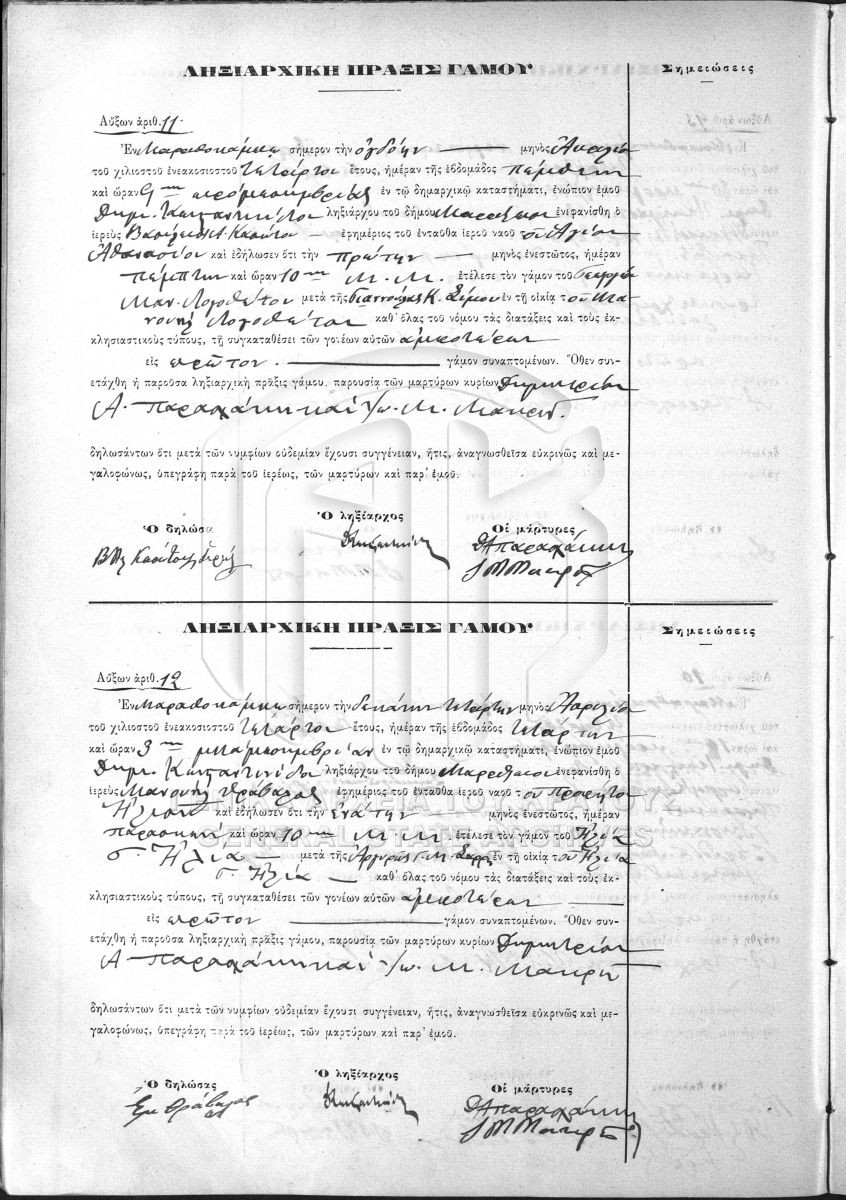 ΛΗΞΙΑΡΧΙΚΗ ΠΡΑΞΙΣ ΓΑΜΟΥ
Σημειώσεις
Αὔξων ἀριθ. 11
Ἐν Μαραθοκάμπῳ σήμερον τὴν ὀγδόην μηνὸς Ἀπριλίου
τοῦ χιλιοστοῦ ἐνεακοσιοστοῦ τετάρτου ἔτους, ἡμέραν τῆς ἑβδομάδος πέμπτην
καὶ ὥραν 9ην προμεσημβρίας ἐν τῷ δημαρχικῷ καταστήματι, ἐνώπιον ἐμοῦ
Δημ. Κωνσταντινίδου ληξιάρχου τοῦ δήμου Μαραθ. ἐνεφανίσθη ὁ
ἱερεὺς ἐφημέριος τοῦ ἐνταῦθα ἱεροῦ ναοῦ τοῦ Ἁγίου
Ἀθανασίου καὶ ἐδήλωσεν ὅτι τὴν πρώτην μηνὸς ἐνεστῶτος, ἡμέραν
πέμπτην καὶ ὥραν 10ην Μ. Μ. ἐτέλεσε τὸν γάμον τοῦ Γεωργίου
Μαν. Λογοθέτου μετὰ τῆς Γιαννούλας Κ. ἐν τῇ οἰκίᾳ τοῦ Μα-
νουὴλ Λογοθέτου καθ' ὅλας τοῦ νόμου τὰς διατάξεις καὶ τοὺς ἐκ-
κλησιαστικοὺς τύπους, τῇ συγκαταθέσει τῶν γονέων αὐτῶν ἀμφοτέρων
εἰς πρῶτον γάμον συναπτομένων. Ὅθεν συν-
ετάχθη ἡ παροῦσα ληξιαρχικὴ πρᾶξις γάμου, παρουσίᾳ τῶν μαρτύρων κυρίων Δημητρίου
Α. καὶ Ἰω. Μ. Μακρῆ
δηλωσάντων ὅτι μετὰ τῶν νυμφίων οὐδεμίαν ἔχουσι συγγένειαν, ἥτις, ἀναγνωσθεῖσα εὐκρινῶς καὶ με-
γαλοφώνως, ὑπεγράφη παρὰ τοῦ ἱερέως, τῶν μαρτύρων καὶ παρ' ἐμοῦ.
Ὁ δηλώσας
Ὁ ληξίαρχος
Οἱ μάρτυρες
ΛΗΞΙΑΡΧΙΚΗ ΠΡΑΞΙΣ ΓΑΜΟΥ
Σημειώσεις
Αὔξων ἀριθ. 12
Ἐν Μαραθοκάμπῳ σήμερον τὴν δεκάτην τετάρτην μηνὸς Ἀπριλίου
τοῦ χιλιοστοῦ ἐνεακοσιοστοῦ τετάρτου ἔτους, ἡμέραν τῆς ἑβδομάδος τετάρτην
καὶ ὥραν 3ην μεταμεσημβρίαν ἐν τῷ δημαρχικῷ καταστήματι, ἐνώπιον ἐμοῦ
Δημ. Κωνσταντινίδου ληξιάρχου τοῦ δήμου Μαραθ. ἐνεφανίσθη ὁ
ἱερεὺς Μανουὴλ Θράβαλος ἐφημέριος τοῦ ἐνταῦθα ἱεροῦ ναοῦ τοῦ Προφήτου
Ἠλιοῦ καὶ ἐδήλωσεν ὅτι τὴν ἐνάτην μηνὸς ἐνεστῶτος, ἡμέραν
παρασκευὴν καὶ ὥραν 10ην Μ. Μ. ἐτέλεσε τὸν γάμον τοῦ Ἠλία
Γ. Ἠλία μετὰ τῆς Ἀργυρῆς Γ. Μ. ἐν τῇ οἰκίᾳ τοῦ Ἠλία
Γ. Ἠλία καθ' ὅλας τοῦ νόμου τὰς διατάξεις καὶ τοὺς ἐκ-
κλησιαστικοὺς τύπους, τῇ συγκαταθέσει τῶν γονέων αὐτῶν ἀμφοτέρων
εἰς πρῶτον γάμον συναπτομένων. Ὅθεν συν-
ετάχθη ἡ παροῦσα ληξιαρχικὴ πρᾶξις γάμου, παρουσίᾳ τῶν μαρτύρων κυρίων Δημητρίου
Α. καὶ Ἰω. Μ. Μακρῆ
δηλωσάντων ὅτι μετὰ τῶν νυμφίων οὐδεμίαν ἔχουσι συγγένειαν, ἥτις, ἀναγνωσθεῖσα εὐκρινῶς καὶ με-
γαλοφώνως, ὑπεγράφη παρὰ τοῦ ἱερέως, τῶν μαρτύρων καὶ παρ' ἐμοῦ.
Ὁ δηλώσας
Ὁ ληξίαρχος
Οἱ μάρτυρες
Ἐμ Θράβαλος